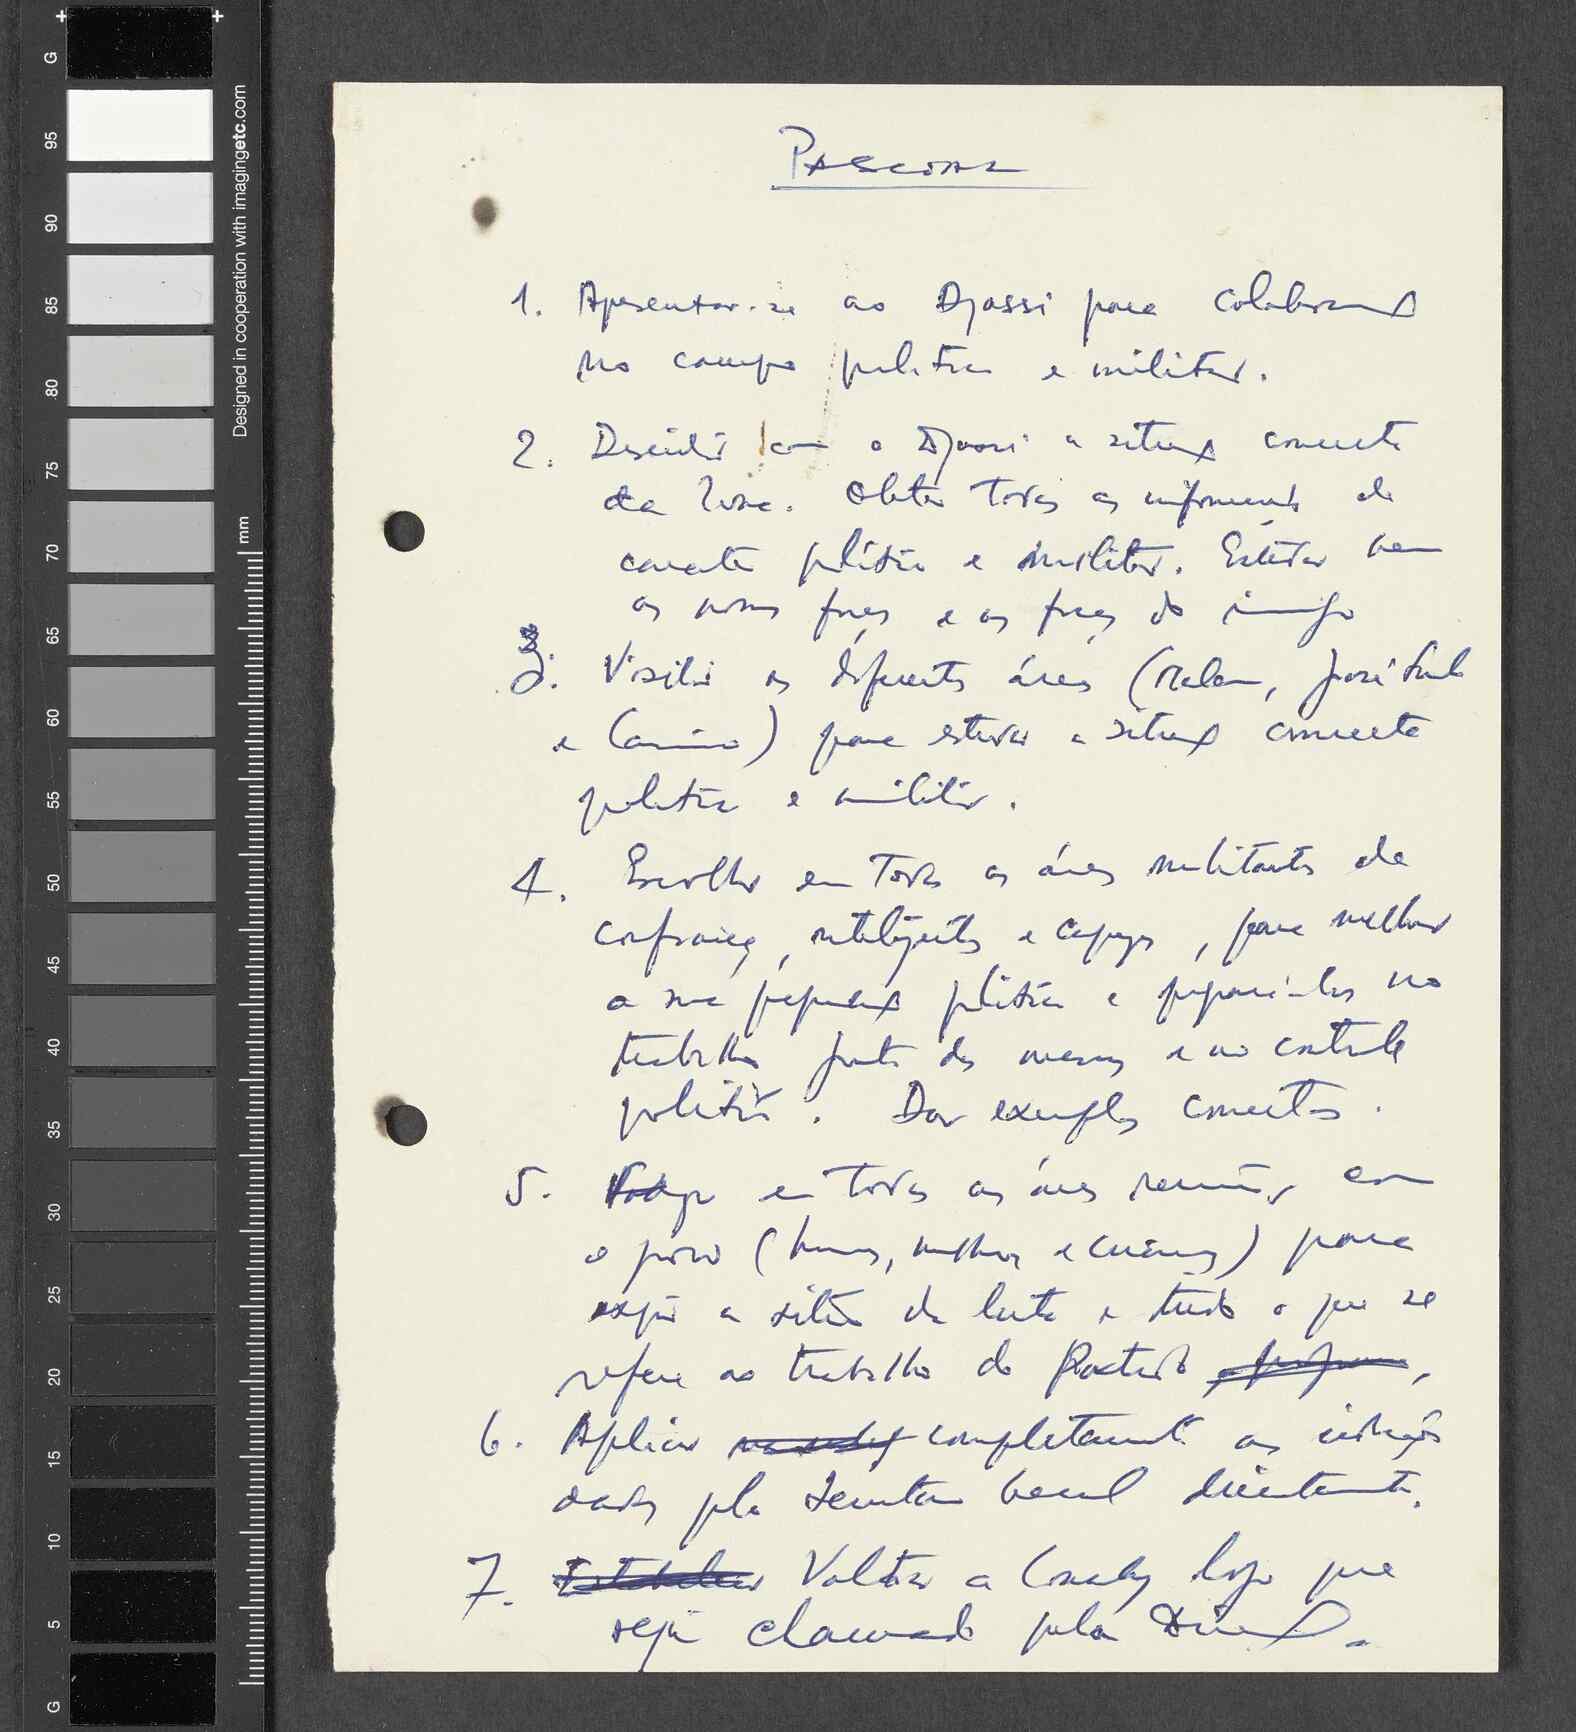 PASCOAL
1. Apresentar-se ao Djassi para colaboração
no campo politico e militar.
2. Discutir com o Djassi a situação concreta
da zona. Obter todas as informações de
caracter politico e militar. Estudar bem
as nossas forças e as forças do inimigo
3. Visitar as diferentes áreas
e para estudar a situação concreta
politica e militar.
4. Escolher em todas as áreas militantes de
confiança, inteligentes e capazes, para melhorar
a sua preparação politica e prepará-los no
trabalho junto das massas e no controle
politico. Dar exemplos concretos.
5. em todas as áreas reunião com
o povo (homens, mulheres e crianças) para
expôr a situação da luta e tudo o que se
refere ao trabalho do Partido
6. Aplicar completamente as instruções
dadas pelo Secretário Geral directamente.
7. Estabelecer Voltar a Conakry logo que
seja chamado pela Direcção.
G
95
90
85
80
75
70
65
60
55
50
45
40
35
30
25
20
15
10
5
G
mm
Designed in cooperation with imagingetc.com